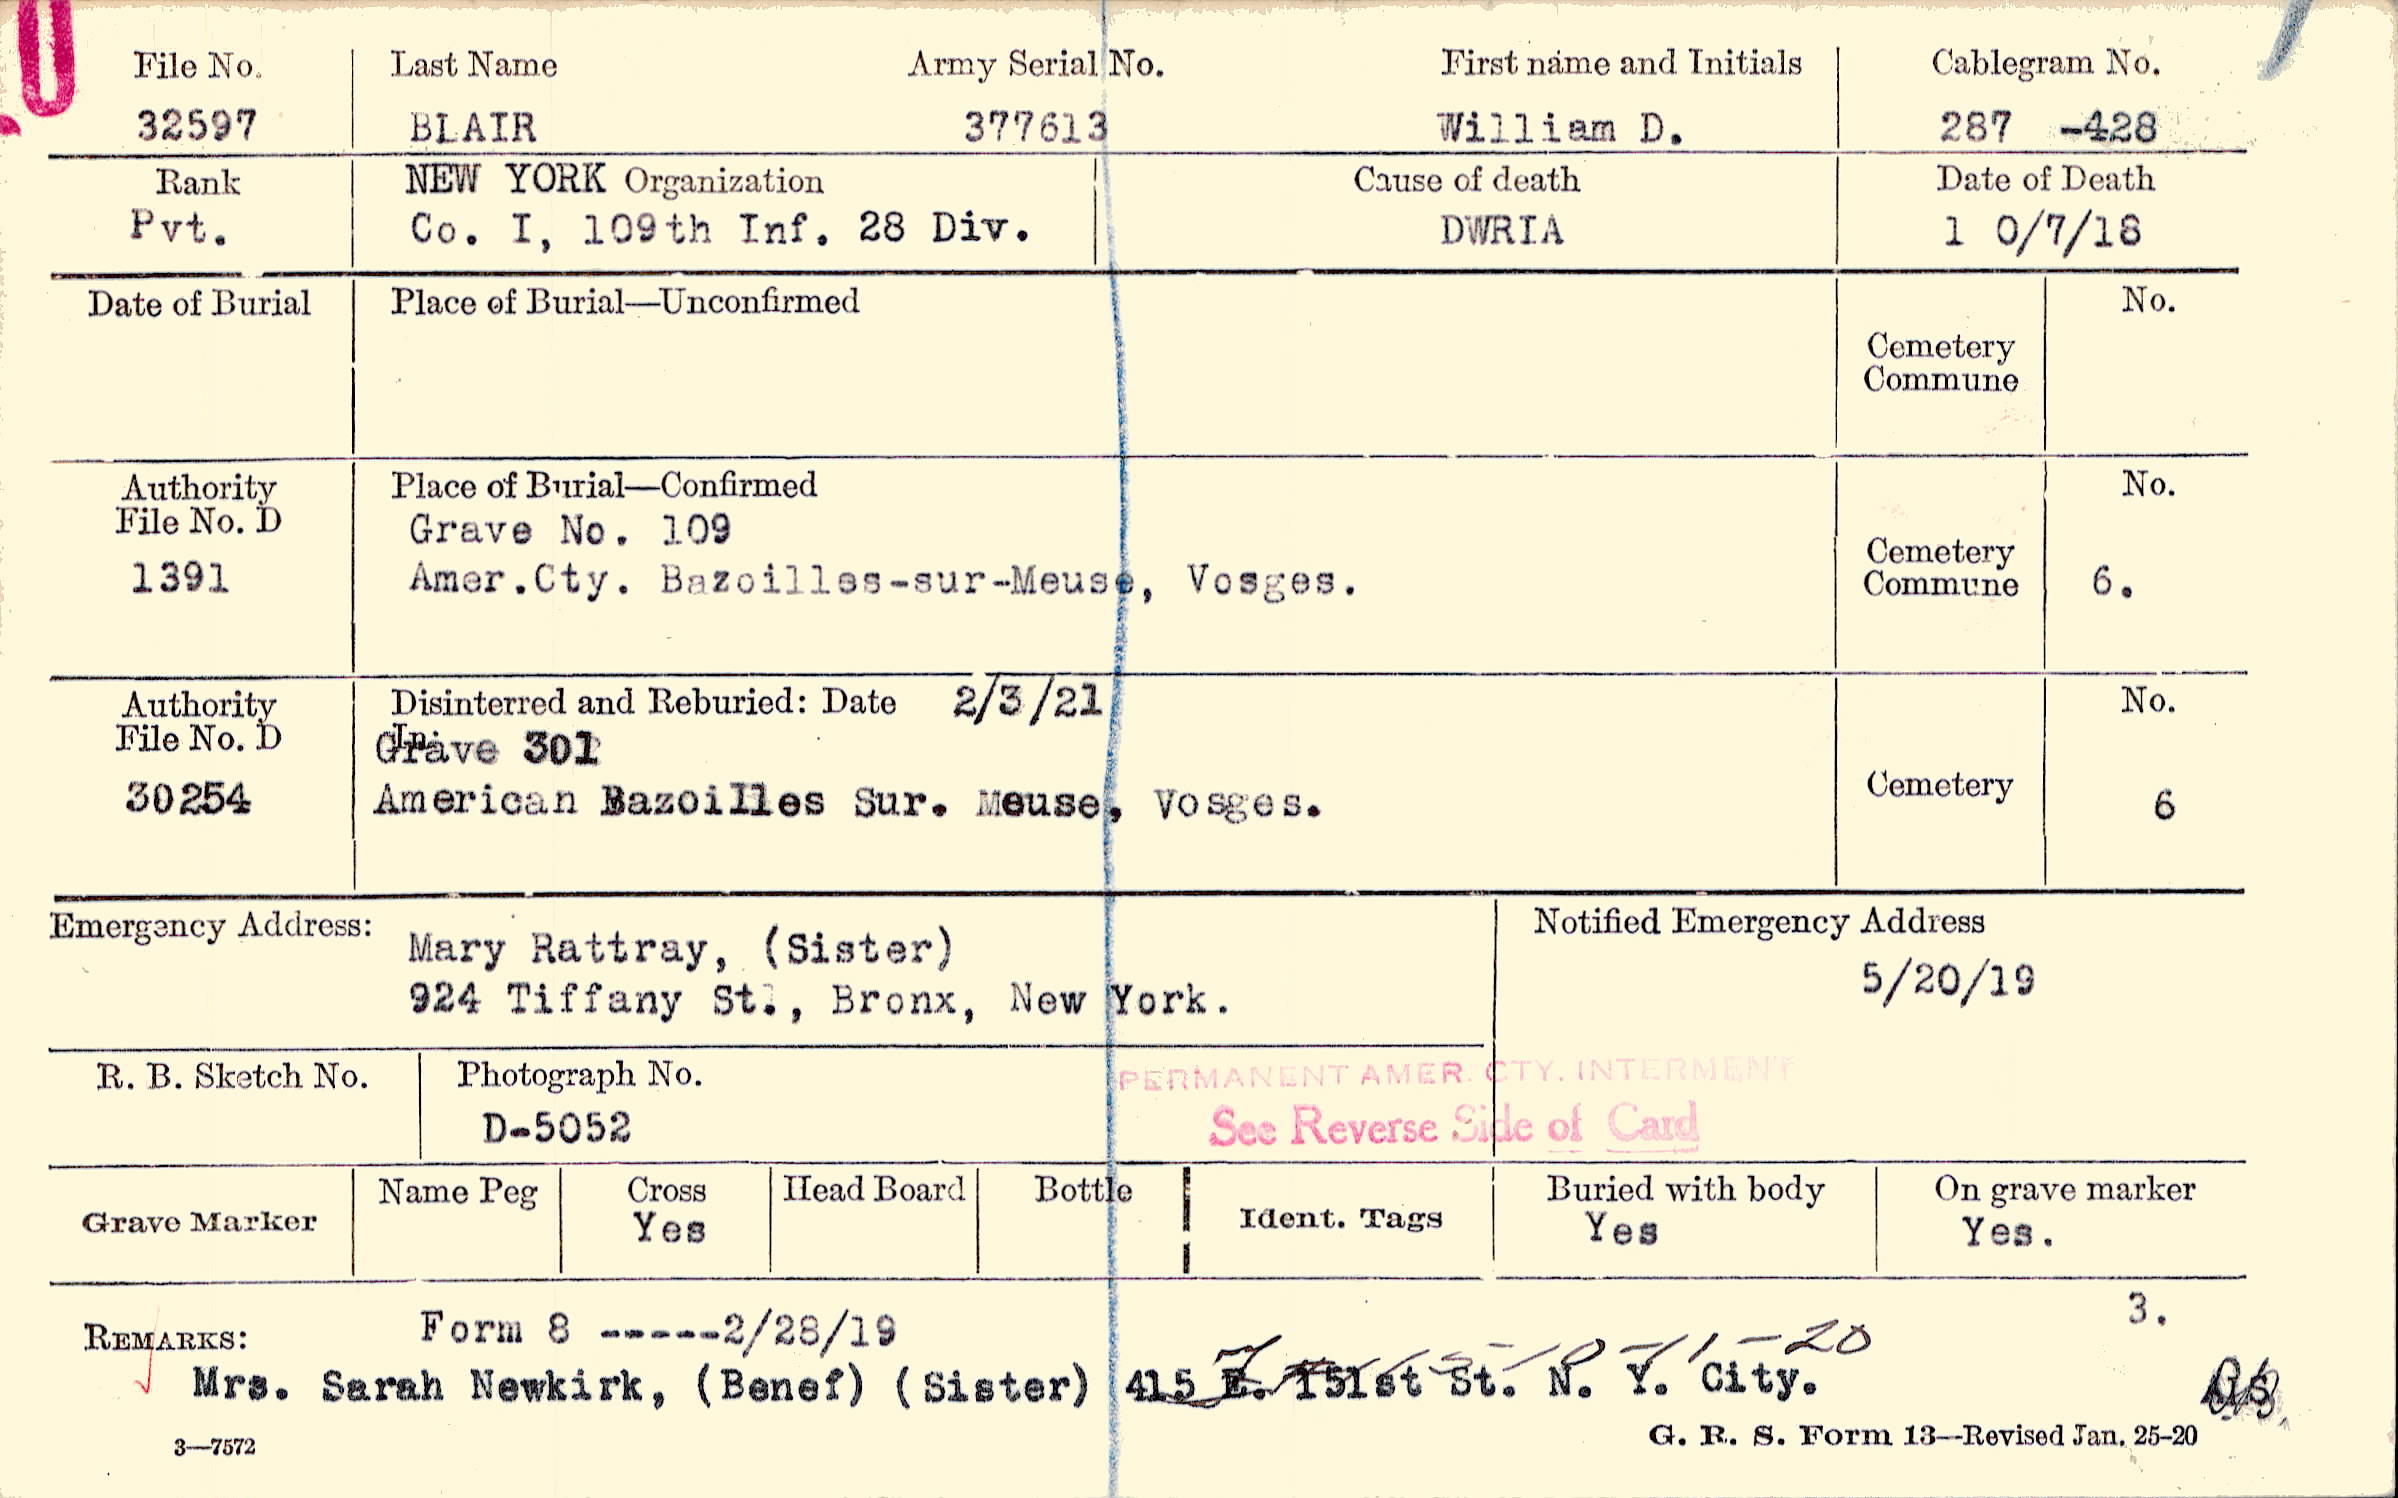 File No. Last Name Army Serial No. First name and Initials Cablegram No.
32597 BLAIR 377613 William D. 287 -428
Rank NEW YORK Organization Cause of death Date of Death
Pvt. Co. I, 109th Inf. 28 Div. DWRIA 1 0/7/18
Date of Burial Place of Burial—Unconfirmed No.
Cemetery
Commune
Authority Place of Burial—Confirmed No.
File No. D Grave No. 109
Cemetery
1391 Amer.Cty. Bazoilles-sur-Meuse, Vosges. Commune 6.
Authority Disinterred and Reburied: Date 2/3/21 No.
File No. D In:
Grave 301
30254 American Bazoilles Sur. Meuse, Vosges. Cemetery 6
Emergency Address: Notified Emergency Address
Mary Rattray, (Sister) 5/20/19
924 Tiffany St., Bronx, New York.
R. B. Sketch No. Photograph No. PERMANENT AMER. CTY. INTERMENT
D-5052 See Reverse Side of Card
Name Peg Cross Head Board Bottle Buried with body On grave marker
Grave Marker Yes Ident. Tags Yes Yes.
3.
REMARKS: Form 8 -----2/28/19
Mrs. Sarah Newkirk, (Benef) (Sister) 415 E. 151st St. N. Y. City.
3—7572 G. R. S. Form 13—Revised Jan. 25-20